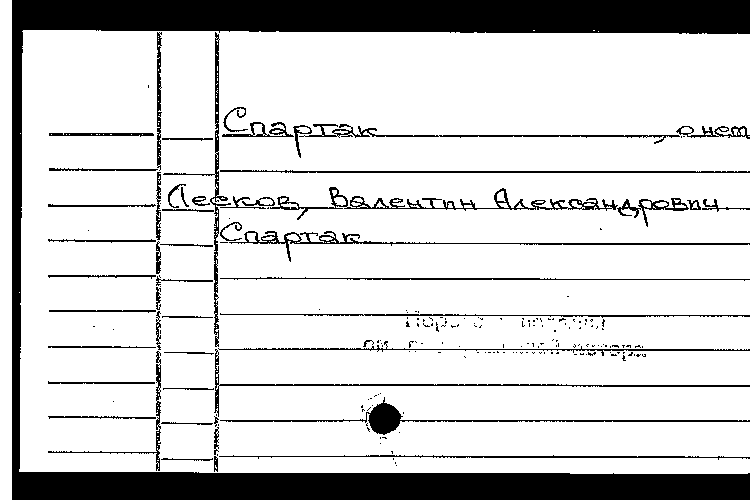 Спартак , о нем
Лесков, Валентин Александрович.
Спартак.